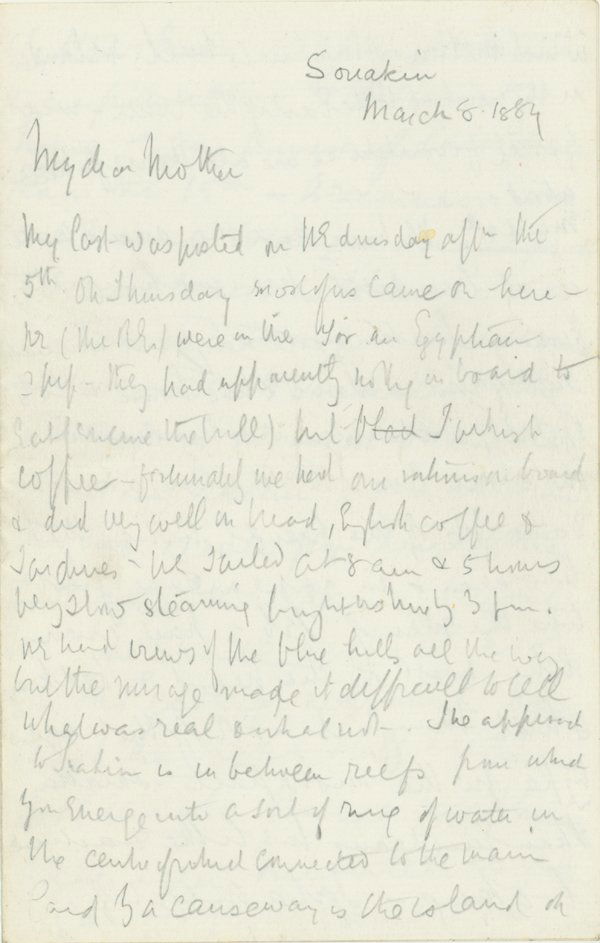 Souakin
March 8. 1884
My dear Mother
My last was posted on Wednesday aftn the
5th. On Thursday most of us came on here –
we (the REs) were in the for an Egyptian
ship – they had apparently nothg on board to
eat (excuse the spill) but blad Turkish
coffee – fortunately we had our rations on board
& did very well on bread, English coffee &
Sardines – We sailed at 8 am & 5 hours
very slow steaming brought us here by 3 pm.
we had views of the blue hills all the way
but the mirage made it difficult to tell
what was real & what not. The approach
to Suakin is in between reefs from which
you emerge into a sort of ring of water in
the centre of which connected to the main
land by a causeway is the island on